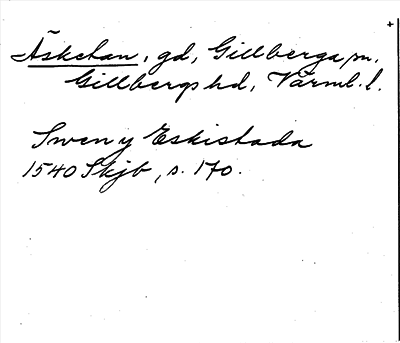 Äskekan, gd, Gillberga sn,
Gillbergs hd, Värml. l.
Swen y Eskistada
1540 Skjb, s. 170.